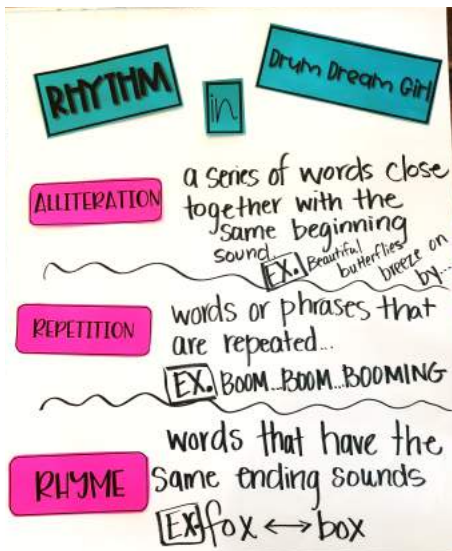 RHYTHM
in
Drum Dream Girl
ALLITERATION
a series of words close
together with the
same beginning
sound...
EX. Beautiful
butterflies
breeze on
by...
REPETITION
words or phrases that
are repeated...
EX. BOOM...BOOM...BOOMING
RHYME
words that have the
same ending sounds
EX. fox ↔ box